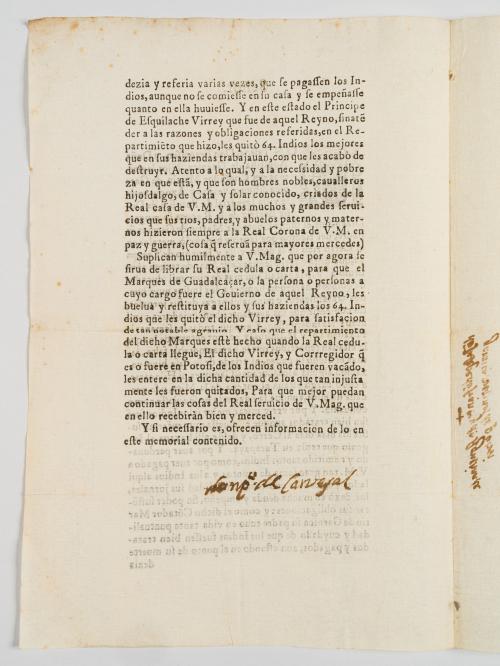 dezia y referia varias vezes, que se pagassen los In-
dios, aunque no se comiesse en su casa y se empeñasse
quanto en ella huuiesse. Y en este estado el Principe
de Esquilache Virrey que fue de aquel Reyno, sin atẽ
der a las razones y obligaciones referidas, en el Re-
partimiẽto que hizo, les quitò 64. Indios los mejores
que en sus haziendas trabajauan, con que les acabò de
destruyr. Atento a lo qual, y a la necessidad y pobre
za en que estã, y que son hombres nobles, caualleros
hijosdalgo, de Casa y solar conocido, criados de la
Real casa de V. M. y a los muchos y grandes serui-
cios que sus tios, padres, y abuelos paternos y mater-
nos hizieron siempre a la Real Corona de V. M. en
paz y guerra, (cosa q̃ reseruã para mayores mercedes)
Suplican humilmente a V. Mag. que por agora se
sirua de librar su Real cedula o carta, para que el
Marques de Guadalcaçar, o la persona o personas a
cuyo cargo fuere el Gouierno de aquel Reyno, les
buelua y restituya a ellos y sus haziendas los 64. In-
dios que les quitò el dicho Virrey, para satisfacion
de tan notable agrauio. Y caso que el repartimiento
del dicho Marques estè hecho quando la Real cedu-
la o carta llegue, El dicho Virrey, y Corrregidor q̃
es o fuere en Potosi, de los Indios que fueren vacãdo,
les entere en la dicha cantidad de los que tan injusta
mente les fueron quitados, Para que mejor puedan
continuar las cosas del Real seruicio de V. Mag. que
en ello recebiràn bien y merced.
Y si necessario es, ofrecen informacion de lo en
este memorial contenido.
de Carvajal